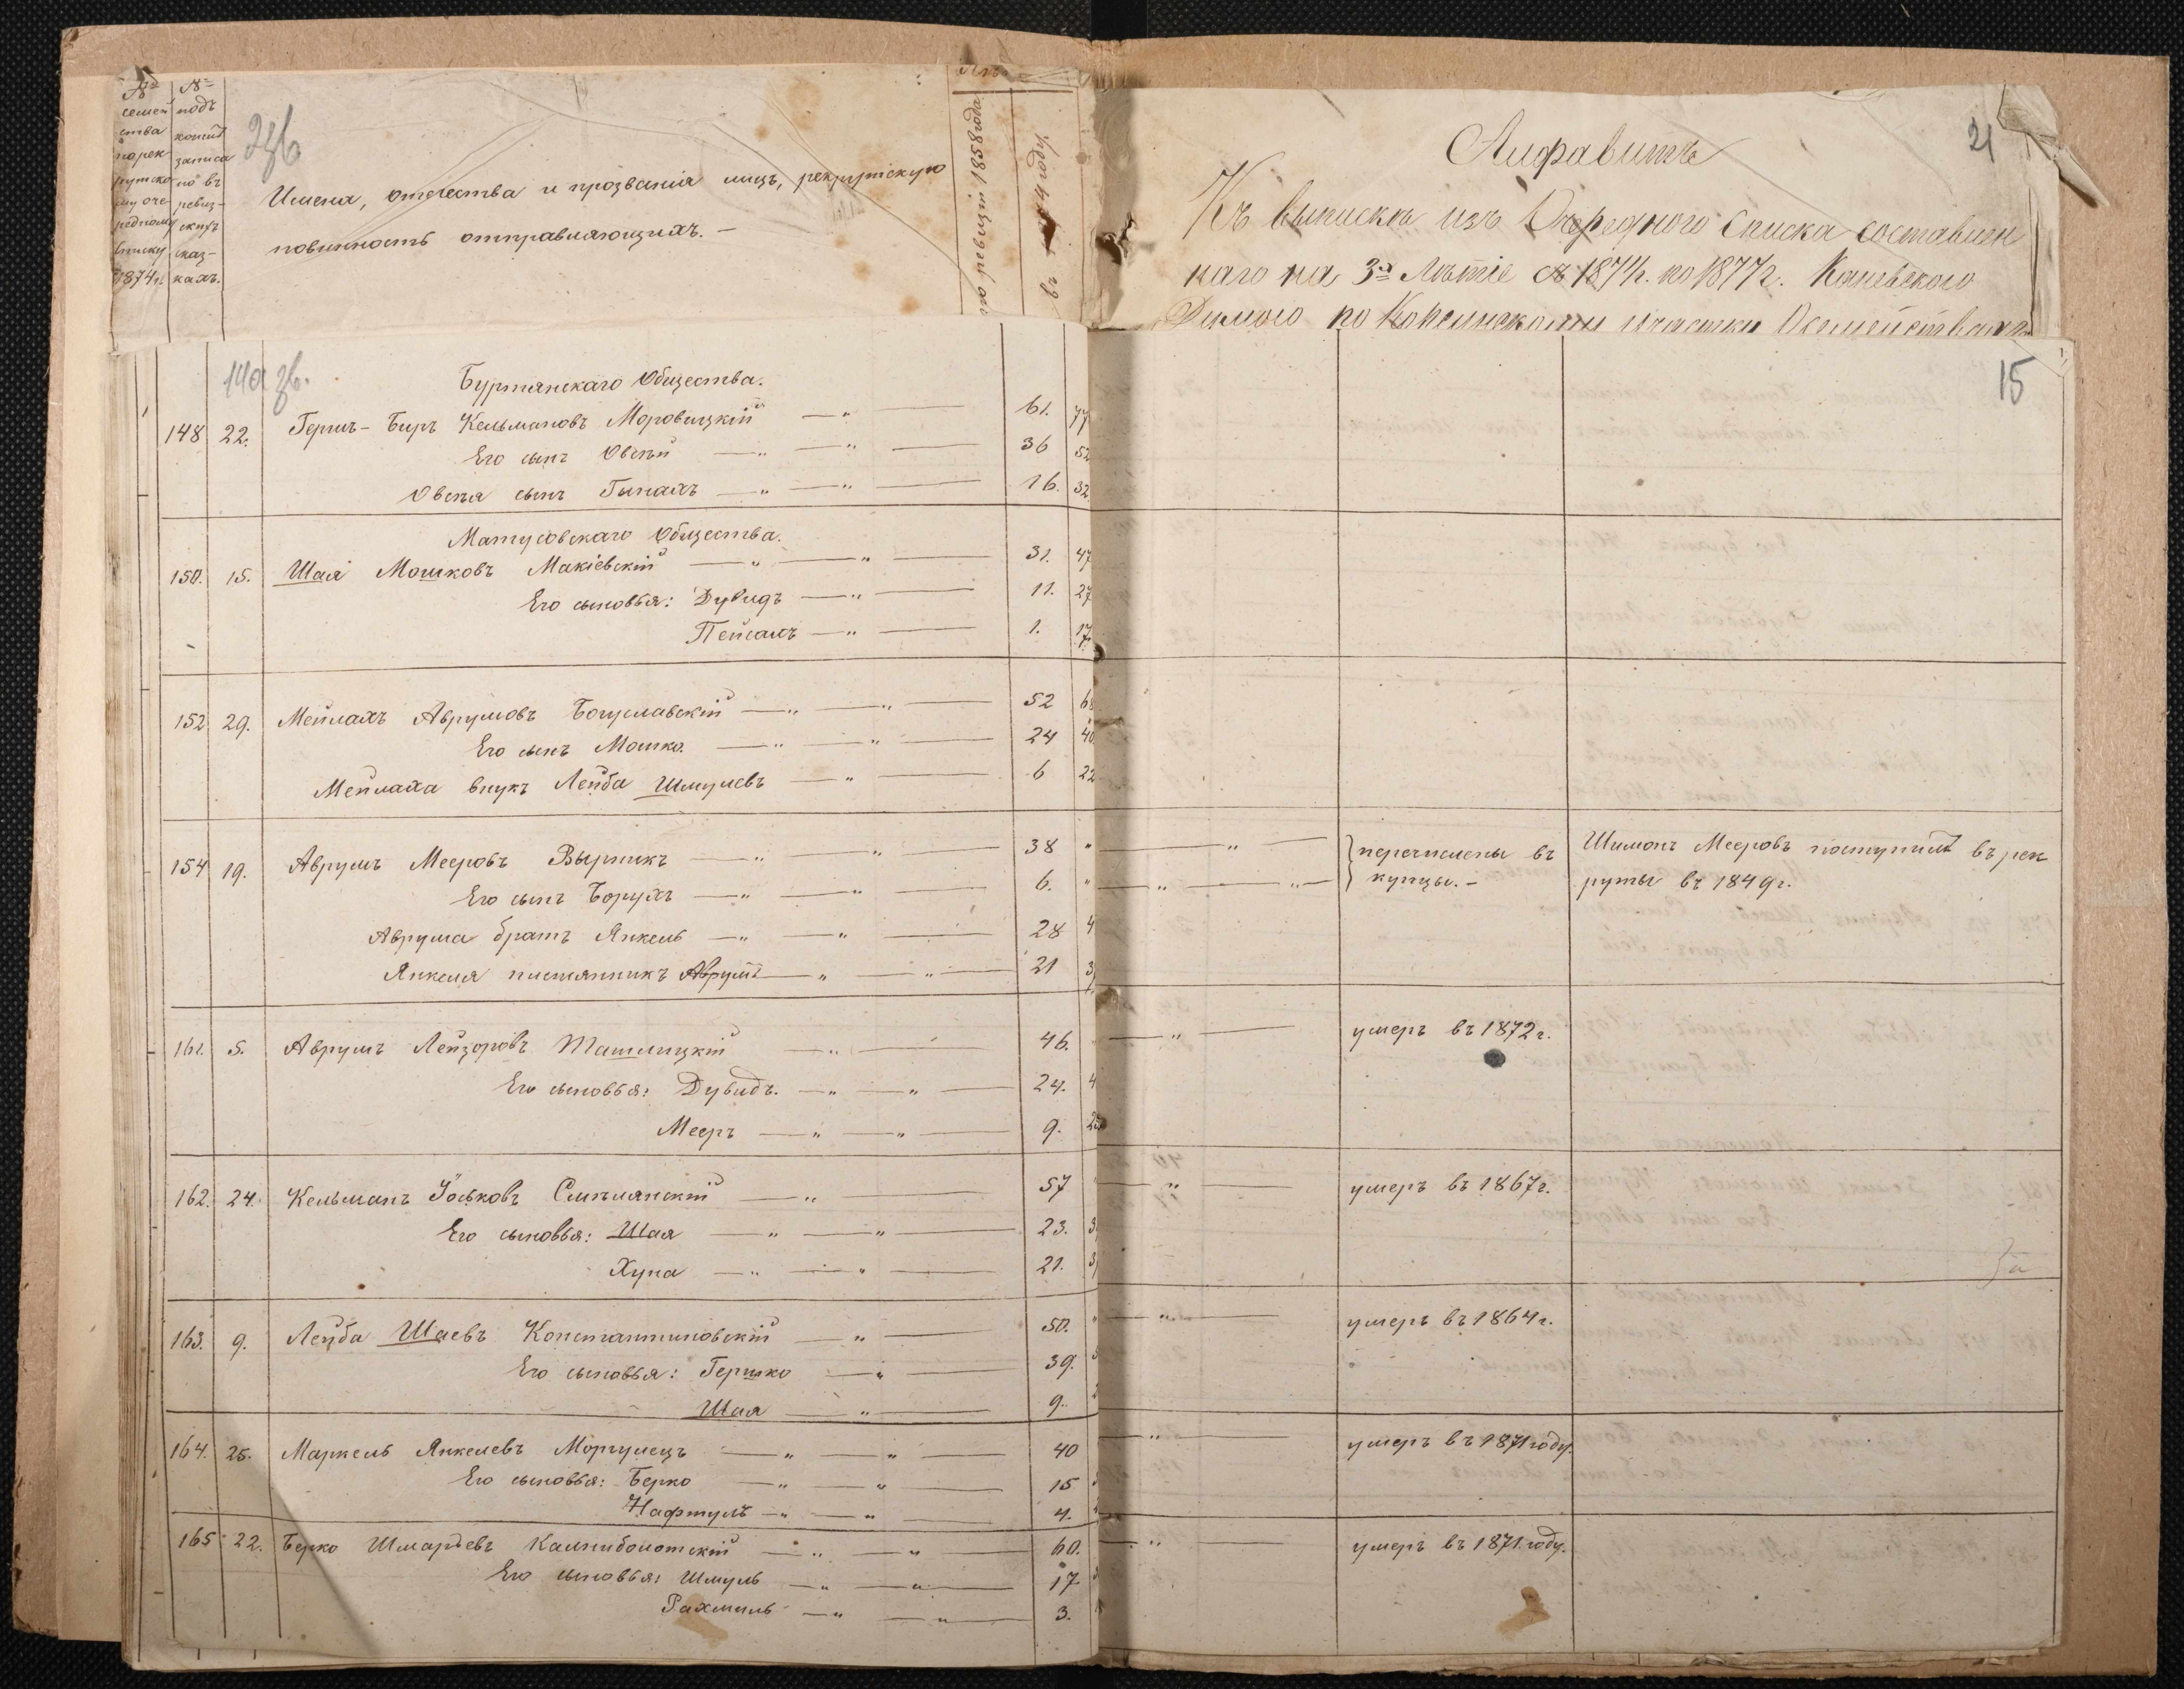 № семейства по рекрутскому очередному списку 1874 г.
№ подъ коимъ записано въ ревизскихъ сказкахъ.
Имена, отчества и прозванія лицъ, рекрутскую
повинность отправляющихъ. —
по ревизіи 1858 года
въ 1874 году.
21
Алфавитъ
Къ выписки изъ Очередного списка составлен
наго на 3х Лѣтіе съ 1874 г. по 1877 г. Каневского
15
14а об.
Буртянскаго Общества.
148 22. Гершъ-Биръ Кельмановъ Моровицкій — " — 61. 77
Его сынъ Овсѣй — " — " — 36 52
Овсѣя сынъ Гынахъ — " — " — 16. 32
Матусовскаго Общества.
150. 15. Шая Мошковъ Макіевскій — " — " — 31. 47
Его сыновья: Дувидъ — " — 11. 27
Пейсахъ — " — 1. 17
152 29. Мейлахъ Аврумовъ Богуславскій — " — " — 52 68
Его сынъ Мошко. — " — " — 24 40
Мейлаха внукъ Лейба Шмулевъ — " — 6 22
154 19. Аврумъ Мееровъ Вырникъ — " — " — 38 " — " — перечислены въ Шимонъ Мееровъ поступилъ въ рек
Его сынъ Борухъ — " — " — 6. " — " — " — купцы. — руты въ 1849 г.
Аврума братъ Янкель — " — " — 28 4
Янкеля племянникъ Аврумъ — " — " — 21 3
161. 5. Аврумъ Лейзоровъ Ташлицкій — " — 46. — " — умеръ въ 1872 г.
Его сыновья: Дувидъ. — " — " — 24. 4
Мееръ — " — " — 9. 25
162. 24. Кельманъ Іоськовъ Смѣлянскій — " — 57 — " — умеръ въ 1867 г.
Его сыновья: Шая — " — " — 23. 3
Хуна — " — " — 21. 3
163. 9. Лейба Шаевъ Константиновскій — " — 50. " — " — умеръ въ 1864 г.
Его сыновья: Гершко — " — 39.
Шая — " — 9.
164. 25. Маркель Янкелевъ Моргулецъ — " — " — 40 — " — умеръ въ 1871 году.
Его сыновья: Берко — " — " — 15
Нафтулъ — " — " — 4.
165 22. Берко Шмарьевъ Калниболотскій — " — " — 60. — " — умеръ въ 1871. году.
Его сыновья: Шмуль — " — " — 17
Рахмиль — " — " — 3.